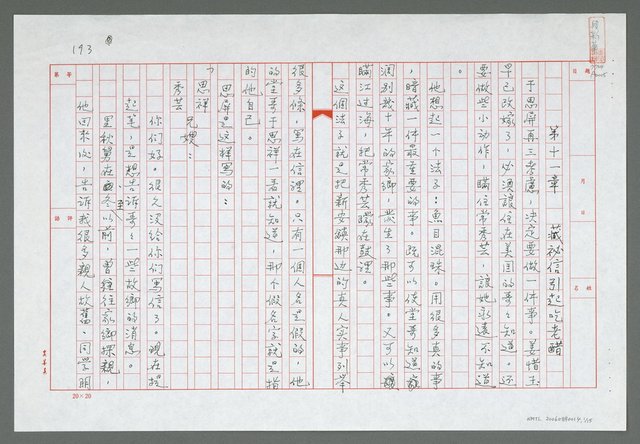 193
第十一章　藏祕信引起吃老醋
于思屏再三考慮，決定要做一件事。姜惜玉
早已改嫁了，必須讓住在美国的哥々知道。还
要做些小动作，瞞住常秀芸，讓她永遠不知道
。
他想起一个法子：魚目混珠。用很多真的事
，暗藏一件最重要的事。既可以使堂哥知道
闊别几十年的家鄉，發生了那些事。又可以
瞞江过海，把常秀芸矇在鼓裡。
这個法子就是把新安鎮那边的真人实事列举
很多條，寫在信裡。只有一個人名是假的，他
的堂哥于思祥一看就知道，那个假名字就是指
的他自己。
思屏是这樣寫的：
思祥
秀芸　兄嫂：
你们好。很久没给你们寫信了。現在提
起筆，是想告訴哥々一些故鄉的消息。
里秋舅在冬至以前，曾經往家鄉探親，
他回來後，告訴我很多親人故舊、同学朋
20×20
KMTL 20060880014